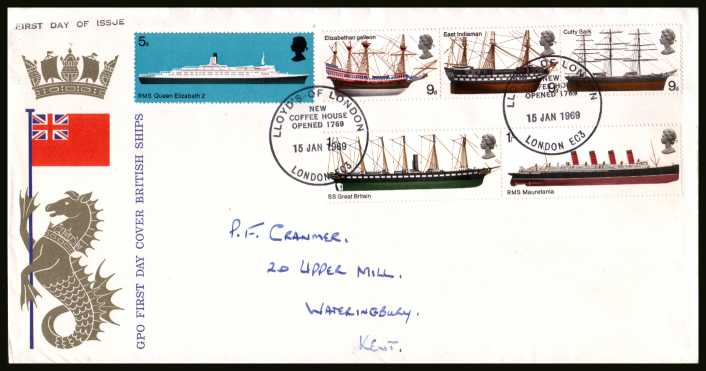 FIRST DAY OF ISSUE
5s
RMS Queen Elizabeth 2
Elizabethan galleon
9d
East Indiaman
9d
Cutty Sark
9d
LLOYD'S OF LONDON
NEW
COFFEE HOUSE
OPENED 1769
15 JAN 1969
LONDON EC3
LLOYD'S OF LONDON
NEW
COFFEE HOUSE
OPENED 1769
15 JAN 1969
LONDON EC3
SS Great Britain
RMS Mauretania
GPO FIRST DAY COVER BRITISH SHIPS
P.F. CRANMER.
20 UPPER MILL.
WATERINGBURY.
KENT.